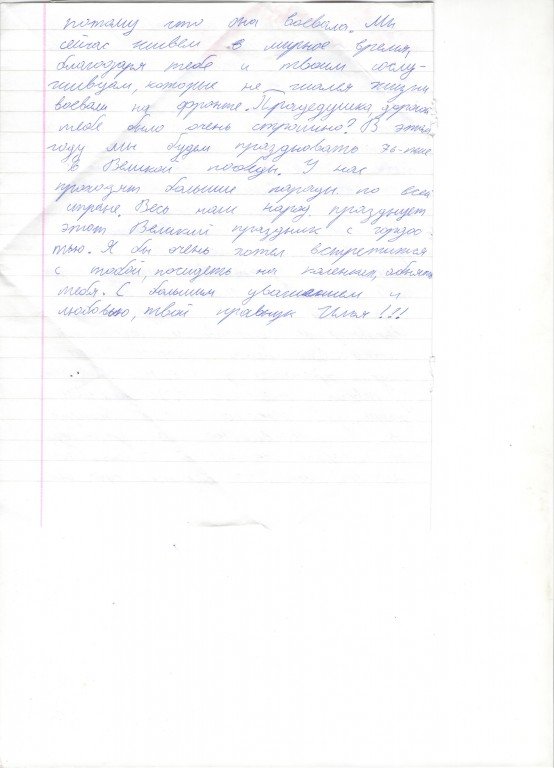 потому что она воевала. Мы
сейчас живем в мирное время,
благодаря тебе и твоим сослу-
живцам, которые не жалея жизни
воевали на фронте. Прадедушка, дорогой
тебе было очень страшно? В этом
году мы будем праздновать
В Великой победы. У нас
проходят большие парады по всей
стране. Весь наш народ празднует
этот Великий праздник с гордос-
тью. Я бы очень хотел встретиться
с тобой, посидеть на коленках, обнять
тебя. С большим уважением и
любовью, твой правнук Илья!!!